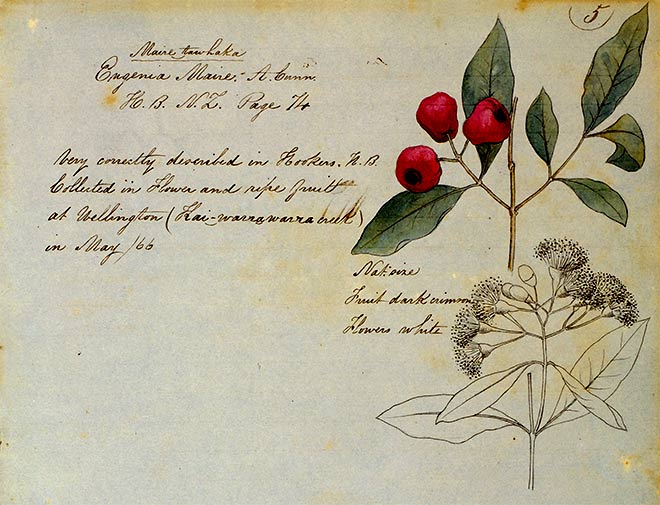 5
Maire tawhaka
Eugenia Maire. A. Cunn.
H. B. N. Z. Page 74
Very correctly described in Hookers. H. B.
Collected in Flower and ripe fruit
at Wellington (Kai-warrawarra creek)
in May /66
Nat. size
Fruit dark crimson
Flowers white